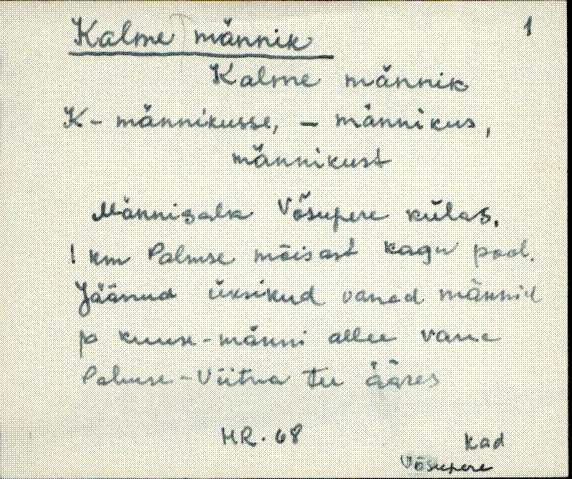 Kalme männik 1
Kalme männik
K- männikusse, - männikus,
männikust
Männisalk Võsupere külas,
1 km Palmse mõisast kagu pool.
Jäänud üksikud vanad männid
ja kuuse-männi allee vana
Palmse-Viitna tee ääres
HR. 68
Kad
Võsupere